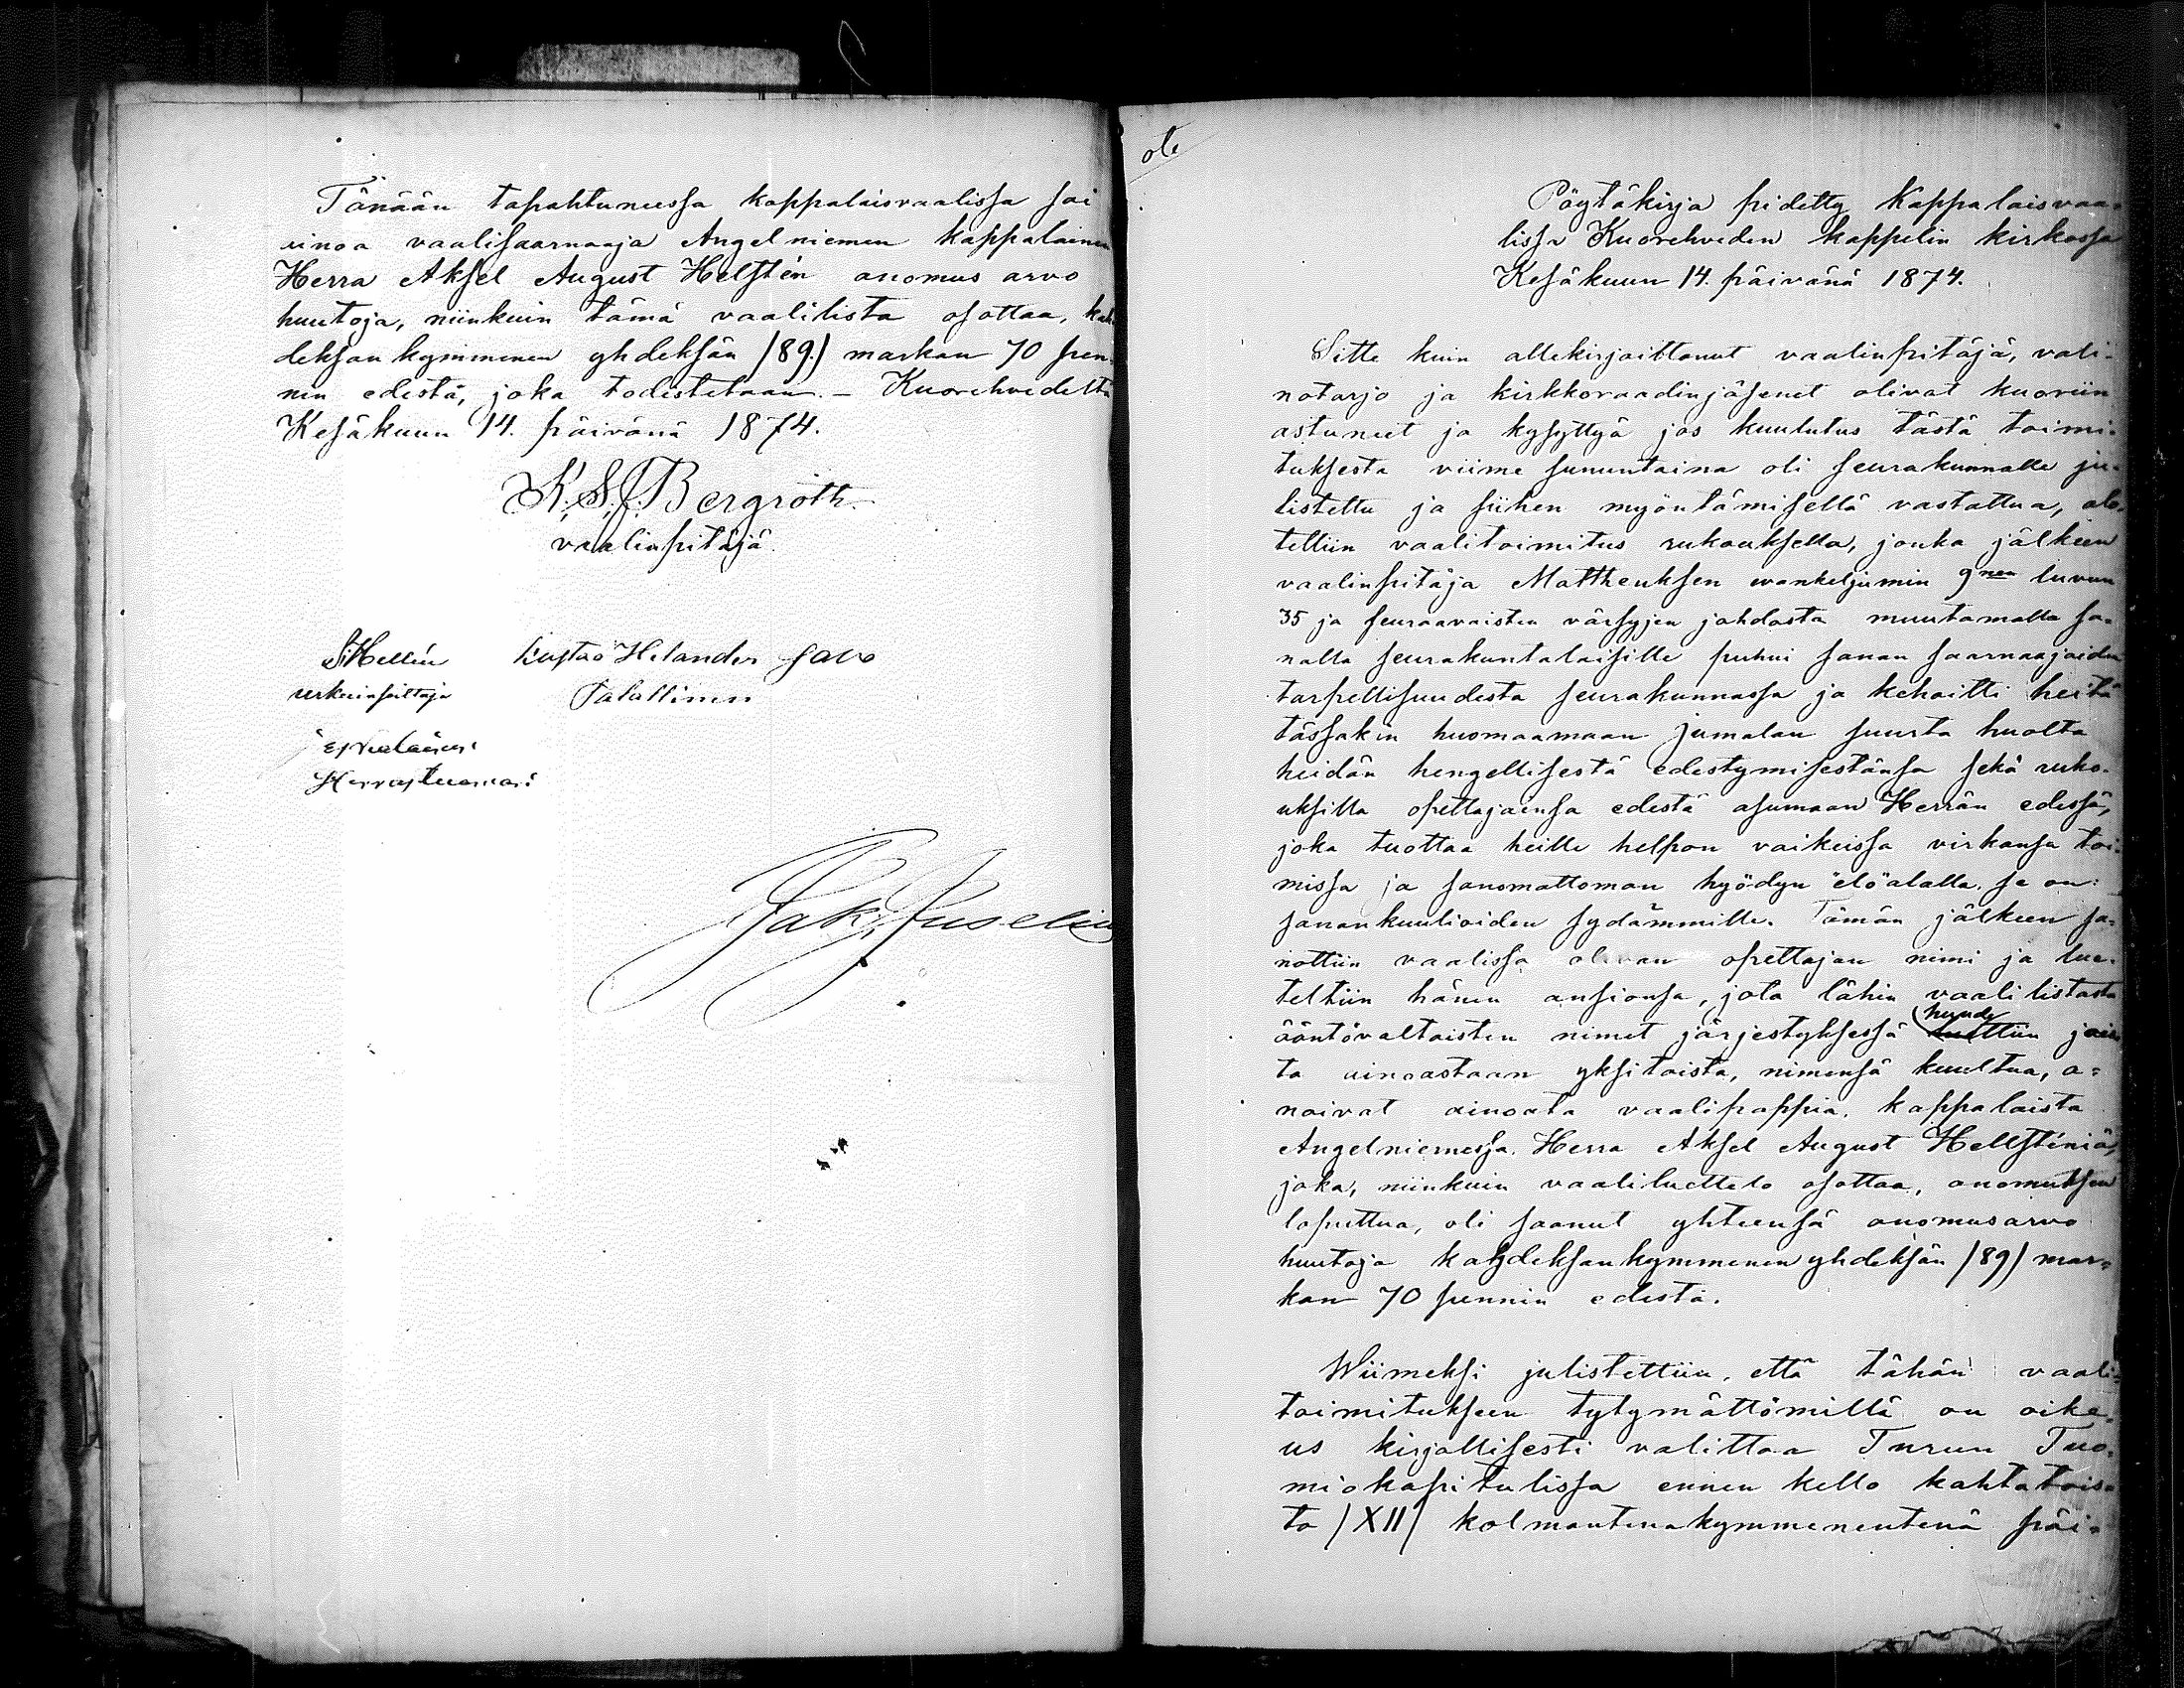 Tänään tapahtuneessa kappalaisvaalissa sai
ainoa vaalisaarnaaja Angelniemen kappalainen
Herra Aksel August Helsten anomus arvo
huutoja, niinkuin tämä vaalilista osottaa, kah
deksankymmenen yhdeksän /89./ markan 70 pen-
nin edestä, joka todistetaan. - Kuorehvedeltä
Kesäkuun 14. päivänä 1874.
K. S. J. Bergroth.
vaalinpitäjä.
Hellén Kustaa Helander
urkuinsoittaja Talollinen
Herrastuomari
Jak. Juselius
ote
Pöytäkirja pidetty Kappalaisvaa-
lissa Kuorehveden kappelin kirkossa
Kesäkuun 14. päivänä 1874.
Sitte kuin allekirjoittanut vaalinpitäjä, vali-
notarjo ja kirkkoraadinjäsenet olivat kuoriin
astuneet ja kysyttyä jos kuulutus tästä toimi-
tuksesta viime sunnuntaina oli seurakunnalle ju-
listettu ja siihen myöntämisellä vastattua, alo-
tettiin vaalitoimitus rukouksella, jonka jälkeen
vaalinpitäjä Mattheuksen evankeljumin 9nen luvun
35 ja seuraavaisten värsyjen johdosta muutamalla sa-
nalla seurakuntalaisille puhui sanan saarnaajaiden
tarpellisuudesta seurakunnassa ja kehoitti heitä
tässäkin huomaamaan Jumalan suurta huolta
heidän hengellisestä edestymisestänsä sekä ruko-
uksilla opettajainsa edestä asumaan Herran edessä,
joka tuottaa heille helpon vaikeissa virkansa toi-
missa ja sanomattoman hyödyn "elo"alalla, se on:
sanankuulioiden sydämmille. Tämän jälkeen sa-
nottiin vaalissa olevan opettajan nimi ja lue-
teltiin hänen ansionsa, jota lähin vaalilistasta
ääntövaltaisten nimet järjestyksessä huudettiin jois-
ta ainoastaan yksitoista, nimensä kuultua, a=
noivat ainoata vaalipappia, kappalaista
Angelniemessa, Herra Aksel August Hellsténiä,
joka, niinkuin vaaliluettelo osottaa, anomuksen
loputtua, oli saanut yhteensä anomusarvo
huutoja kahdeksankymmenen yhdeksän /89/ mar=
kan 70 pennin edestä.
Wiimeksi julistettiin, että tähän vaali=
toimitukseen tytymättömillä on oike=
us kirjallisesti valittaa Turun Tuo=
miokapitulissa ennen kello kahtatois=
ta /XII/ kolmantenakymmenentenä päi=